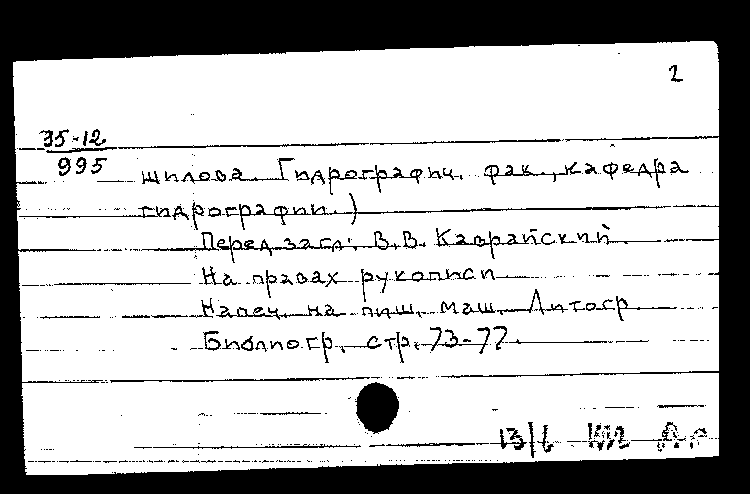 2
35-12
995
шилова. Гидрографич. фак., кафедра
гидрографии.)
Перед загл.: В.В. Каврайский.
На правах рукописи
Напеч. на пиш. маш. Литогр.
Библиогр. стр. 73-77.